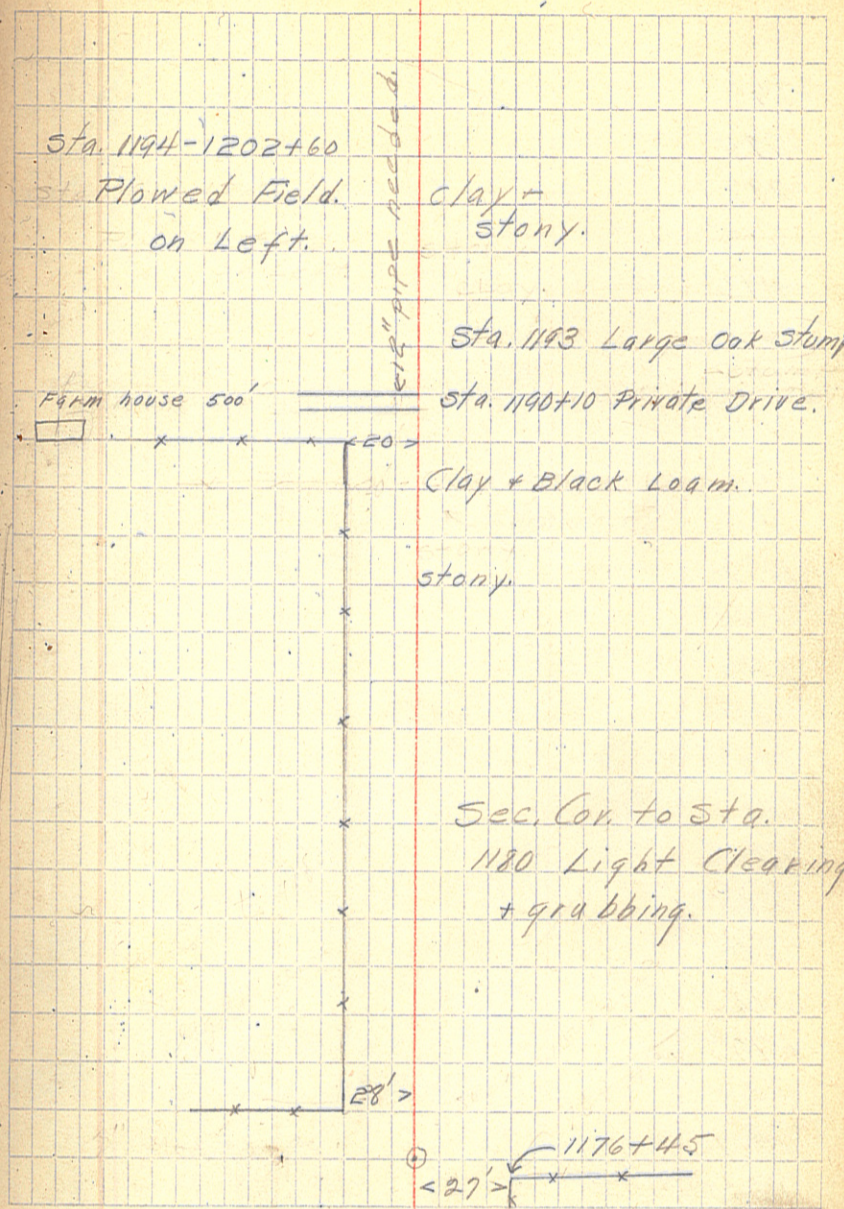 Sta. 1194-1202+60
Plowed Field.
on Left.
clay-
stony.
12" pipe needed.
Sta. 1193 Large Oak Stump
Farm house 500'
Sta. 1190+10 Private Drive.
20 >
Clay + Black Loam.
stony.
Sec. Cor. to Sta.
1180 Light Clearing
+ grubbing.
28' >
1176+45
< 27' >